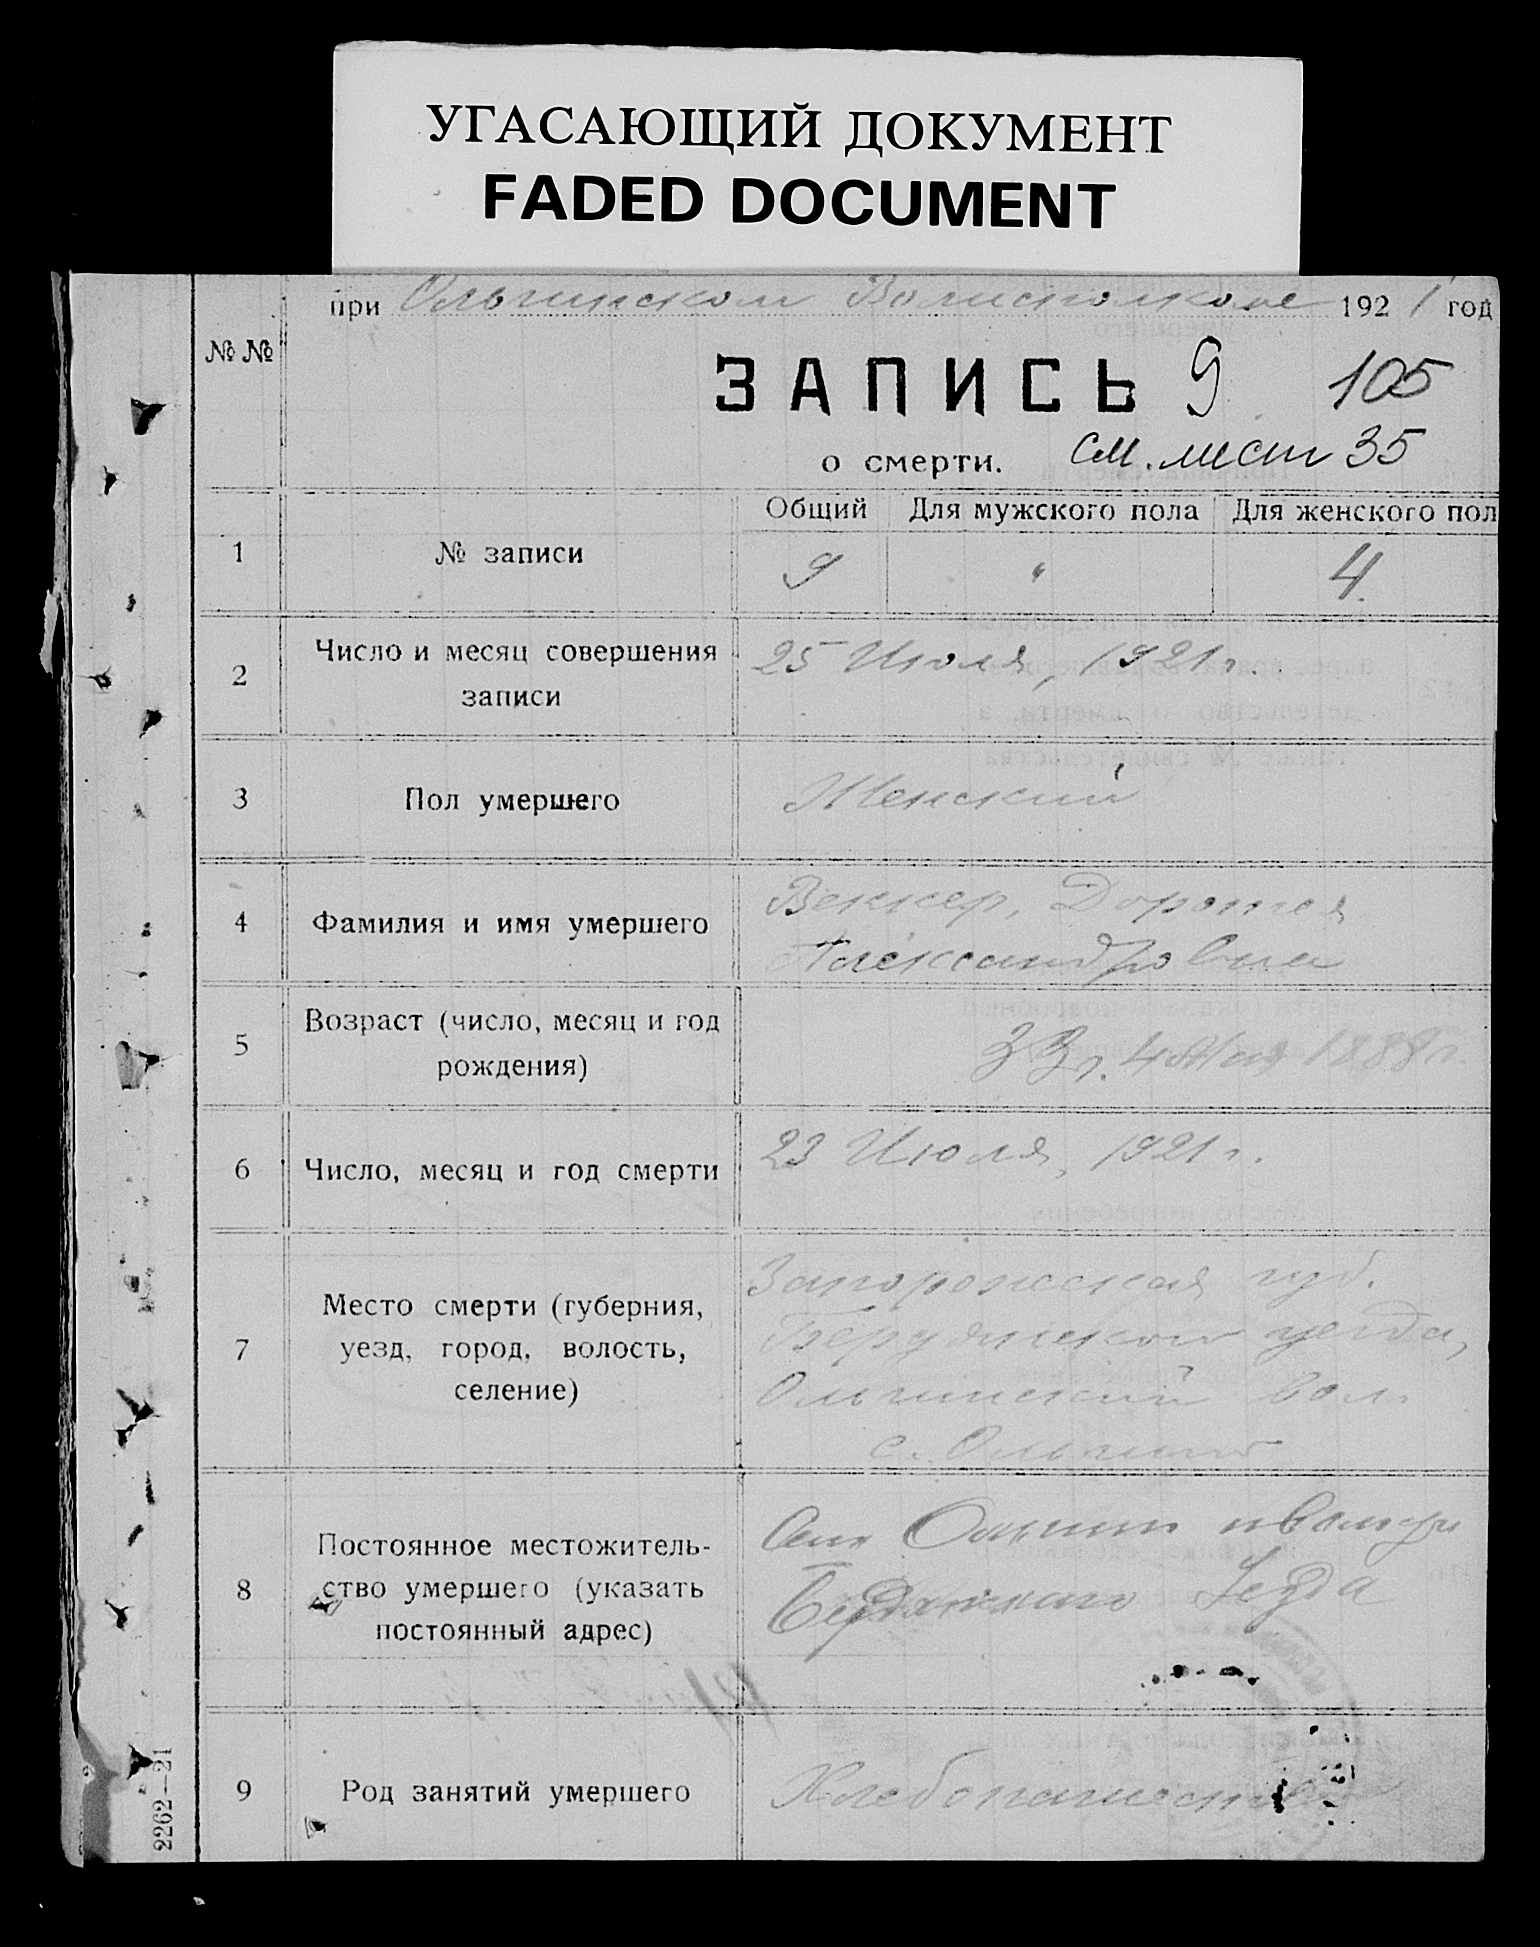 УГАСАЮЩИЙ ДОКУМЕНТ
FADED DOCUMENT
при Ольгинском Волисполкоме 1921 год
№№
ЗАПИСЬ 9 105
о смерти. см. лист 35
Общий Для мужского пола Для женского пол
1 № записи 9 " 4
2 Число и месяц совершения 25 Июля, 1921 г.
записи
3 Пол умершего Женский
4 Фамилия и имя умершего Веккер, Доротея
Александровна
5 Возраст (число, месяц и год
рождения) 33 г. 4 Мая 1888 г.
6 Число, месяц и год смерти 23 Июля, 1921 г.
7 Место смерти (губерния, Запорожская губ.
уезд, город, волость, Бердянского уезда,
селение) Ольгинский вол.
с. Ольгино
8 Постоянное местожитель- Ольгин
ство умершего (указать Бердянского Уезда
постоянный адрес)
9 Род занятий умершего Хлебопашество
2262—21